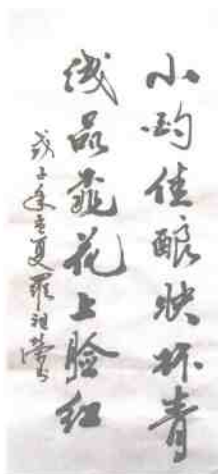 小酌佳酿快杯青
浅品龙花上脸红
戊子年孟夏罗祖荣书